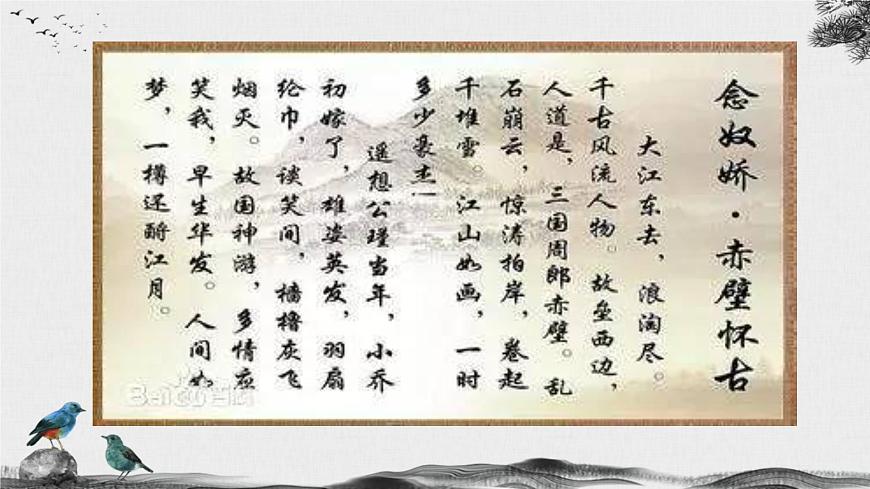 念奴娇·赤壁怀古
大江东去，浪淘尽。
千古风流人物。故垒西边，
人道是，三国周郎赤壁。乱
石崩云，惊涛拍岸，卷起
千堆雪。江山如画，一时
多少豪杰！
遥想公瑾当年，小乔
初嫁了，雄姿英发，羽扇
纶巾，谈笑间，樯橹灰飞
烟灭。故国神游，多情应
笑我，早生华发。人间如
梦，一樽还酹江月。